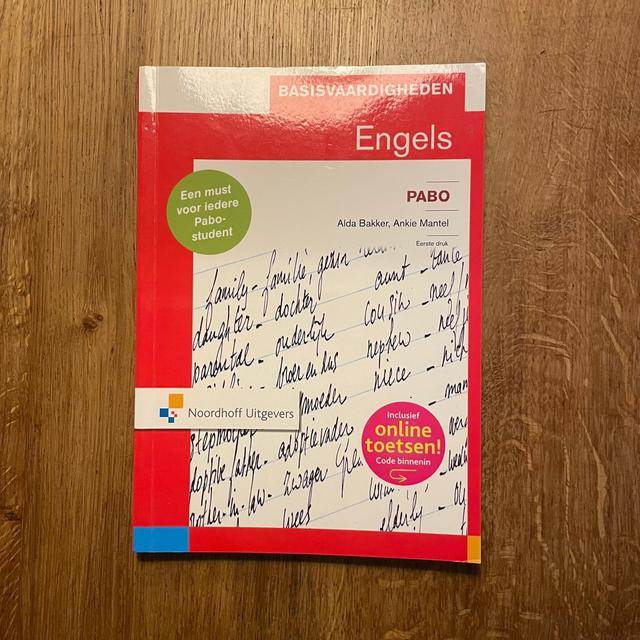 BASISVAARDIGHEDEN
Engels
Een must
voor iedere
Pabo-
student
PABO
Alda Bakker, Ankie Mantel
Eerste druk
family - familie, gezin
aunt - tante
daughter - dochter
cousin - neef/
parental - ouderlijk
nephew - neef
broer en zus
niece -
moeder
Noordhoff Uitgevers
adoptievader
Inclusief
online
toetsen!
Code binnenin
zwager
wees
elderly -